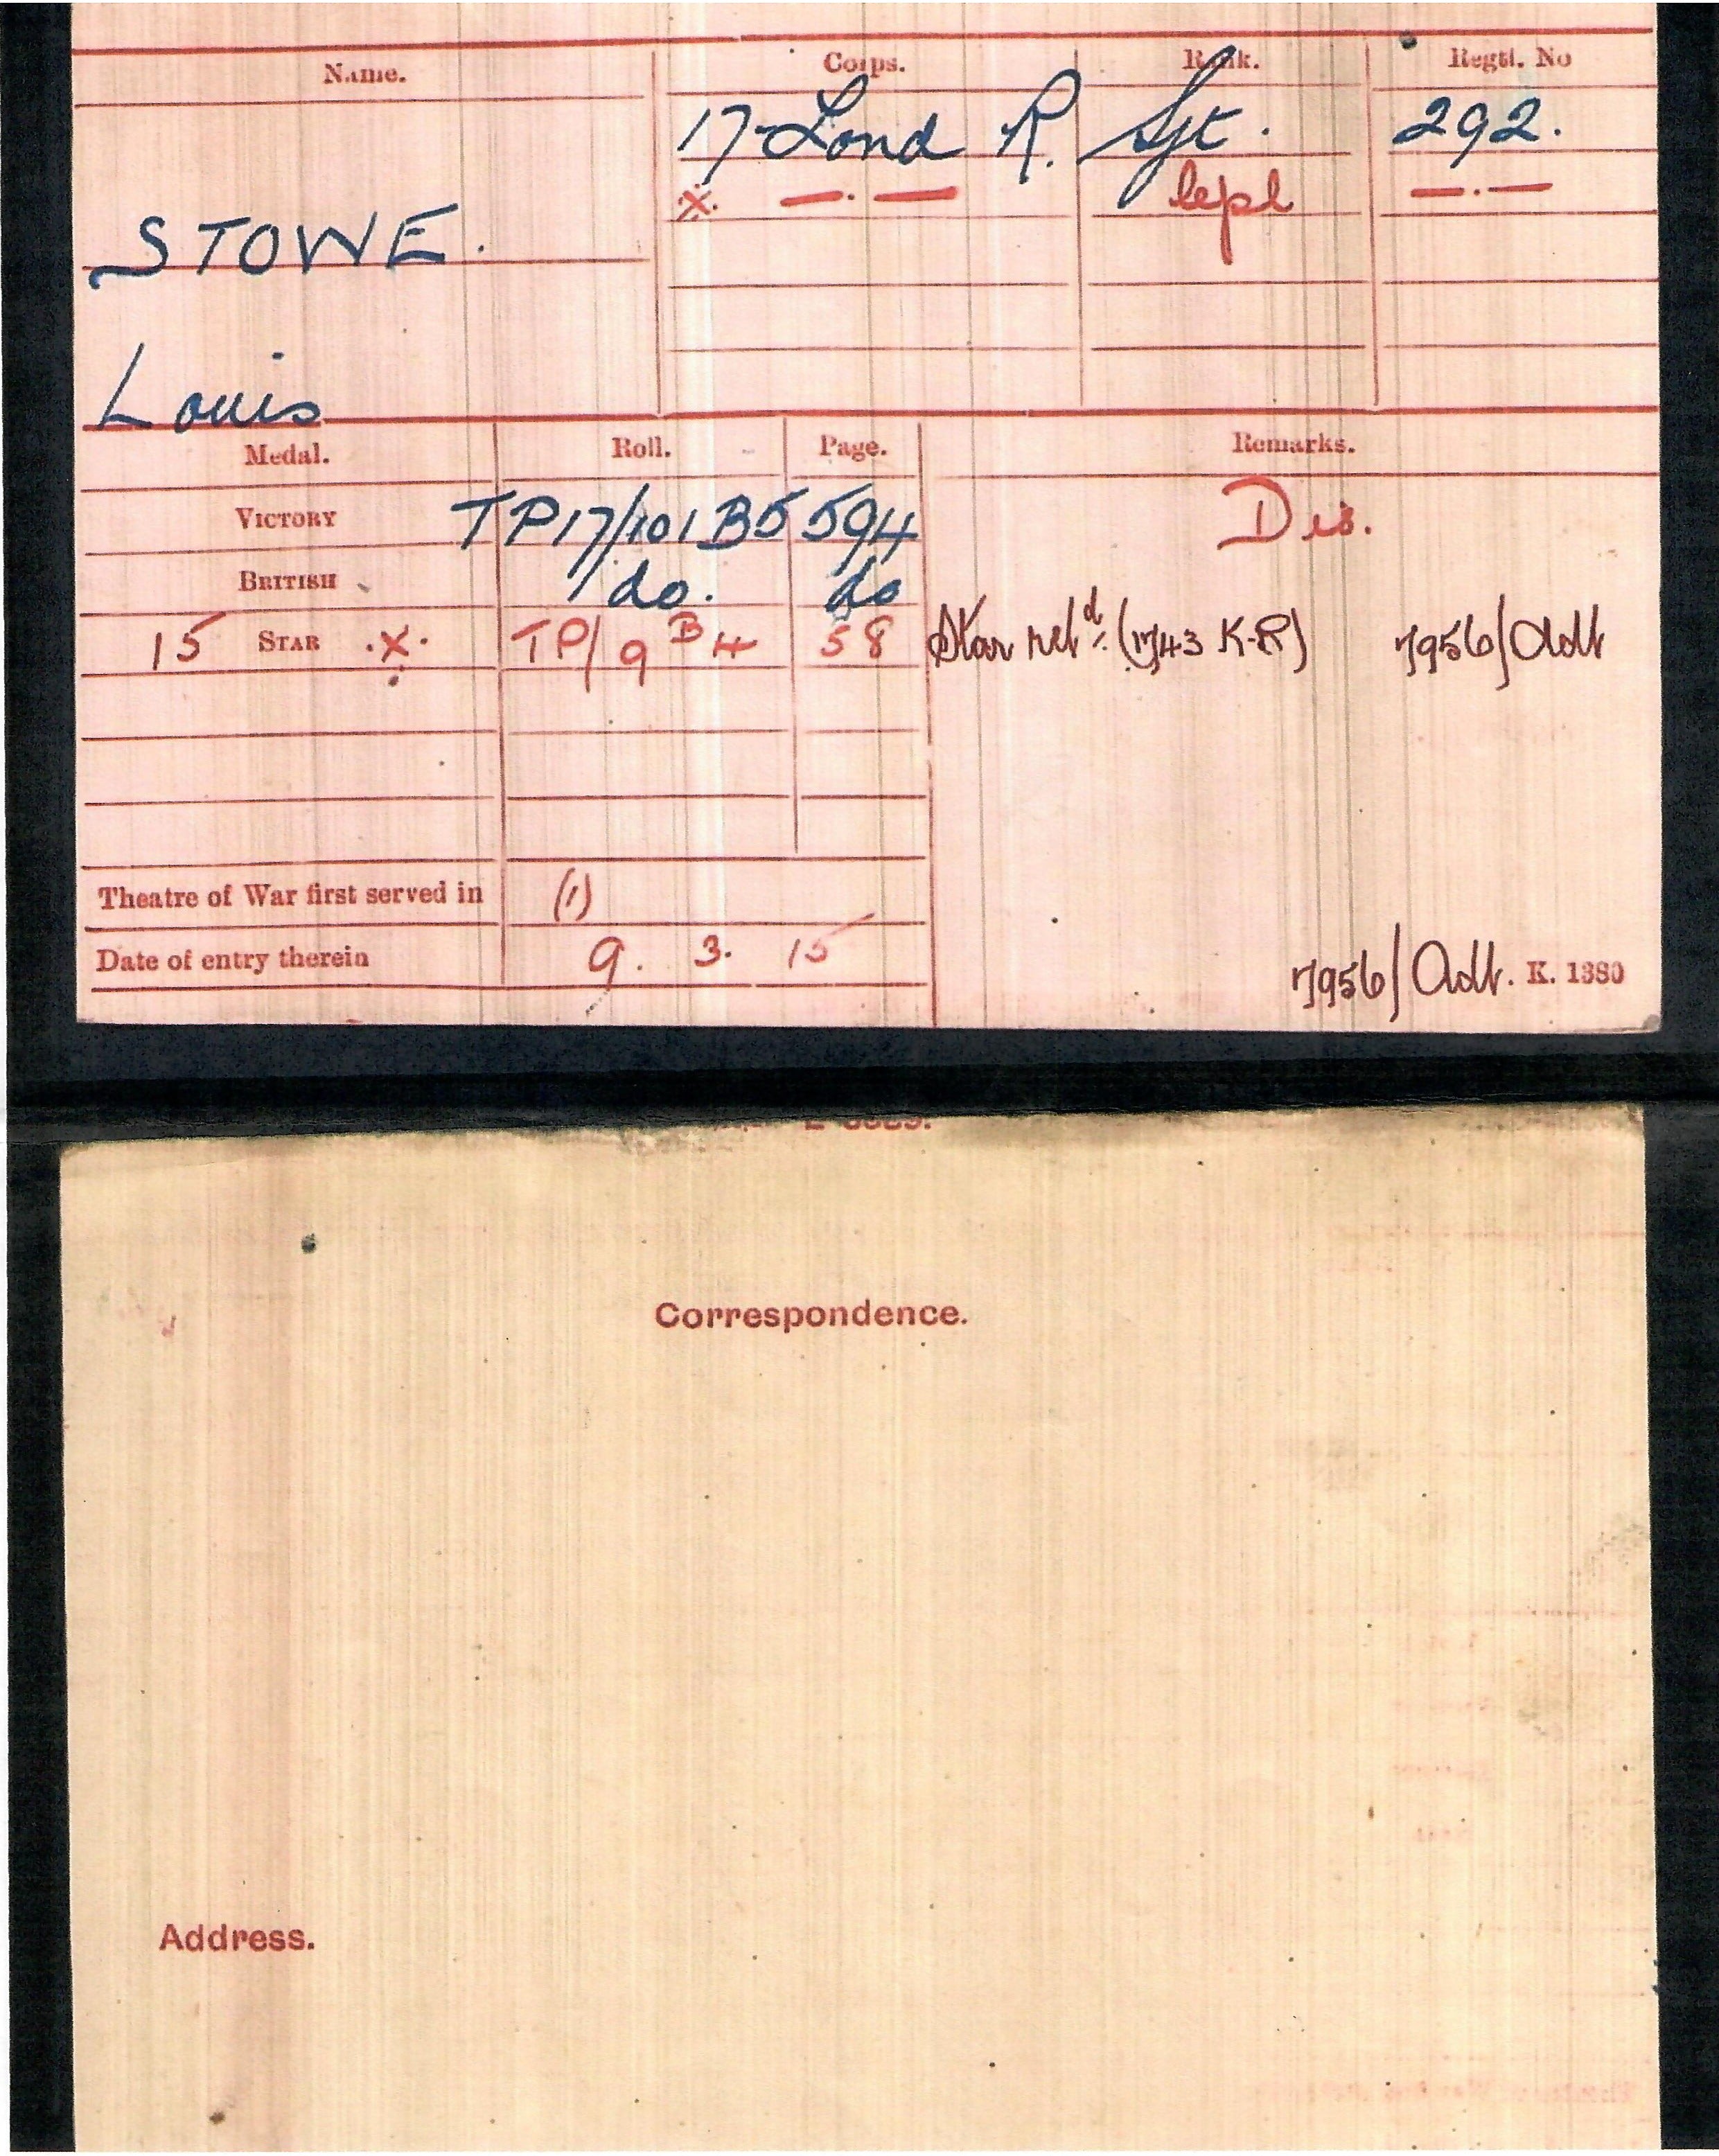 Name. Corps. Rank. Regtl. No
17-Lond R. Sjt. 292.
X. —.— Cpl —.—
STOWE.
Louis
Medal. Roll. Page. Remarks.
VICTORY TP17/101B5 594 Dis.
BRITISH do. do
15 STAR .X. TP/9B4 58 Star retd. (1743 K.R) 7956/Adt
Theatre of War first served in (1)
Date of entry therein 9. 3. 15
7956/Adt. K. 1380
Correspondence.
Address.